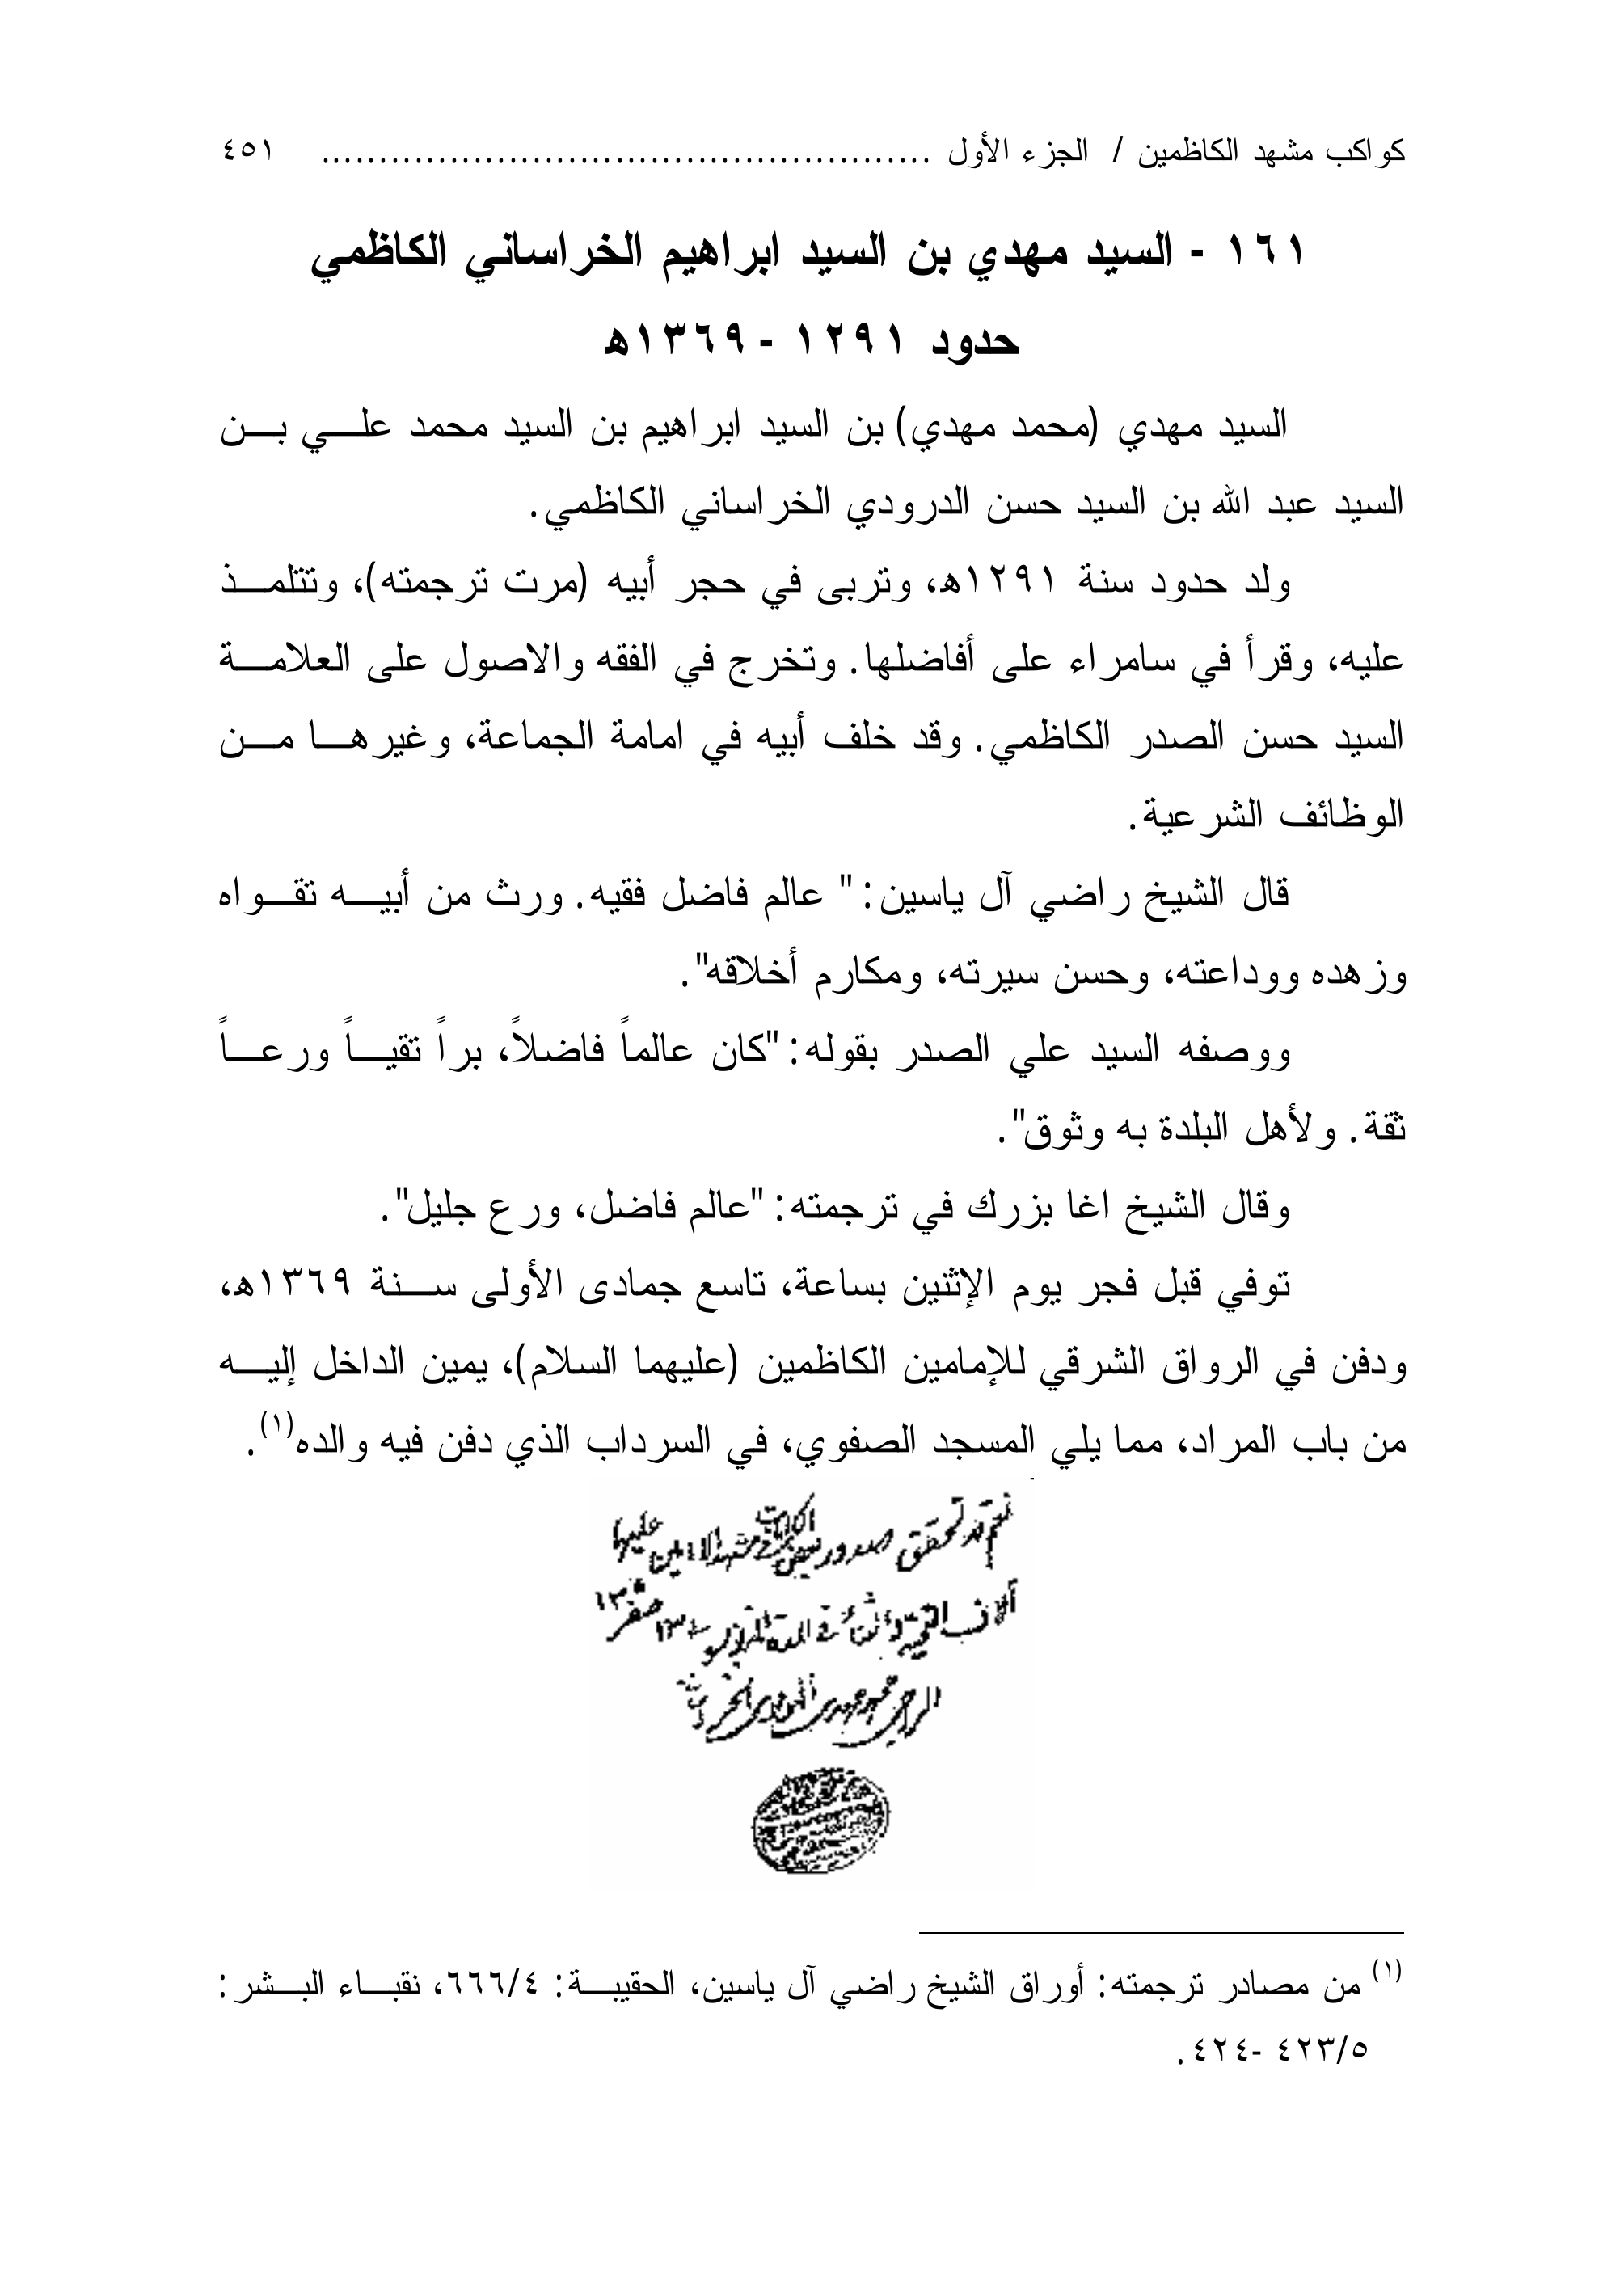 كواكب مشهد الكاظمين / الجزء الأول .................................................... ٤٥١
١٦١ - السيد مهدي بن السيد ابراهيم الخراساني الكاظمي
حدود ١٢٩١ - ١٣٦٩هـ
السيد مهدي (محمد مهدي) بن السيد ابراهيم بن السيد محمد علي بن
السيد عبد الله بن السيد حسن الدرودي الخراساني الكاظمي.
ولد حدود سنة ١٢٩١هـ، وتربى في حجر أبيه (مرت ترجمته)، وتتلمذ
عليه، وقرأ في سامراء على أفاضلها. وتخرج في الفقه والاصول على العلامة
السيد حسن الصدر الكاظمي. وقد خلف أبيه في امامة الجماعة، وغيرها من
الوظائف الشرعية.
قال الشيخ راضي آل ياسين: " عالم فاضل فقيه. ورث من أبيه تقواه
وزهده ووداعته، وحسن سيرته، ومكارم أخلاقه".
ووصفه السيد علي الصدر بقوله: "كان عالماً فاضلاً، براً تقياً ورعاً
ثقة. ولأهل البلدة به وثوق".
وقال الشيخ اغا بزرك في ترجمته: "عالم فاضل، ورع جليل".
توفي قبل فجر يوم الإثنين بساعة، تاسع جمادى الأولى سنة ١٣٦٩هـ،
ودفن في الرواق الشرقي للإمامين الكاظمين (عليهما السلام)، يمين الداخل إليه
من باب المراد، مما يلي المسجد الصفوي، في السرداب الذي دفن فيه والده(١).
(١) من مصادر ترجمته: أوراق الشيخ راضي آل ياسين، الحقيبة: ٦٦٦/٤، نقباء البشر:
٤٢٣/٥ -٤٢٤.